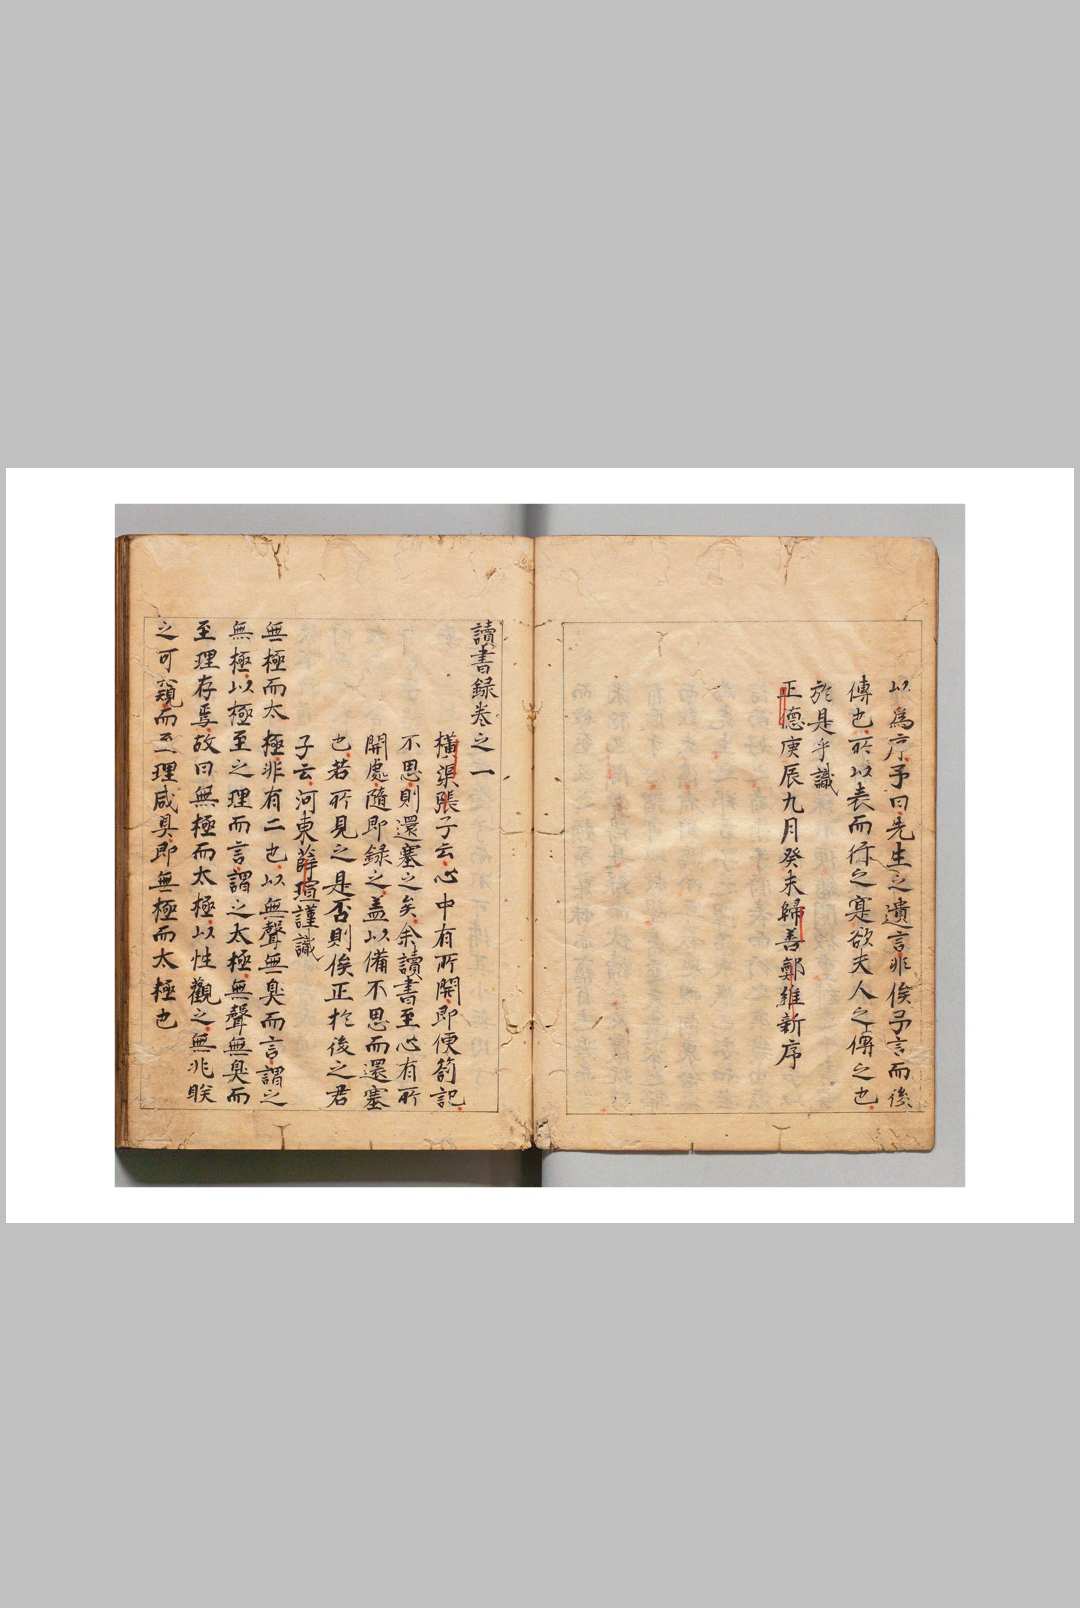 以為序予曰先生之遺言非俟予言而後
傳也所以表而行之寔欲夫人之傳之也
於是乎識
正德庚辰九月癸未歸善鄭維新序
讀書録卷之一
橫渠張子云心中有所開即便劄記
不思則還塞之矣余讀書至心有所
開處隨即録之盖以備不思而還塞
也若所見之是否則俟正於後之君
子云河東薛瑄謹識
無極而太極非有二也以無聲無臭而言謂之
無極以極至之理而言謂之太極無聲無臭而
至理存焉故曰無極而太極以性觀之無兆眹
之可窺而至理咸具即無極而太極也